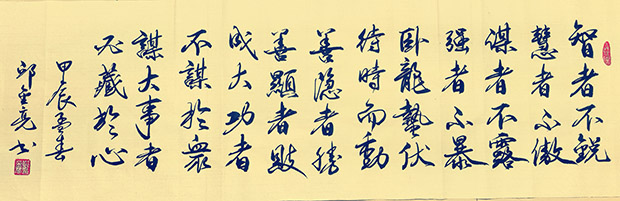 智者不銳
慧者不傲
谋者不露
强者不暴
卧龍蟄伏
待時而動
善隐者勝
善顯者敗
成大功者
不謀於衆
謀大事者
必藏於心
甲辰孟春
邱金亮书